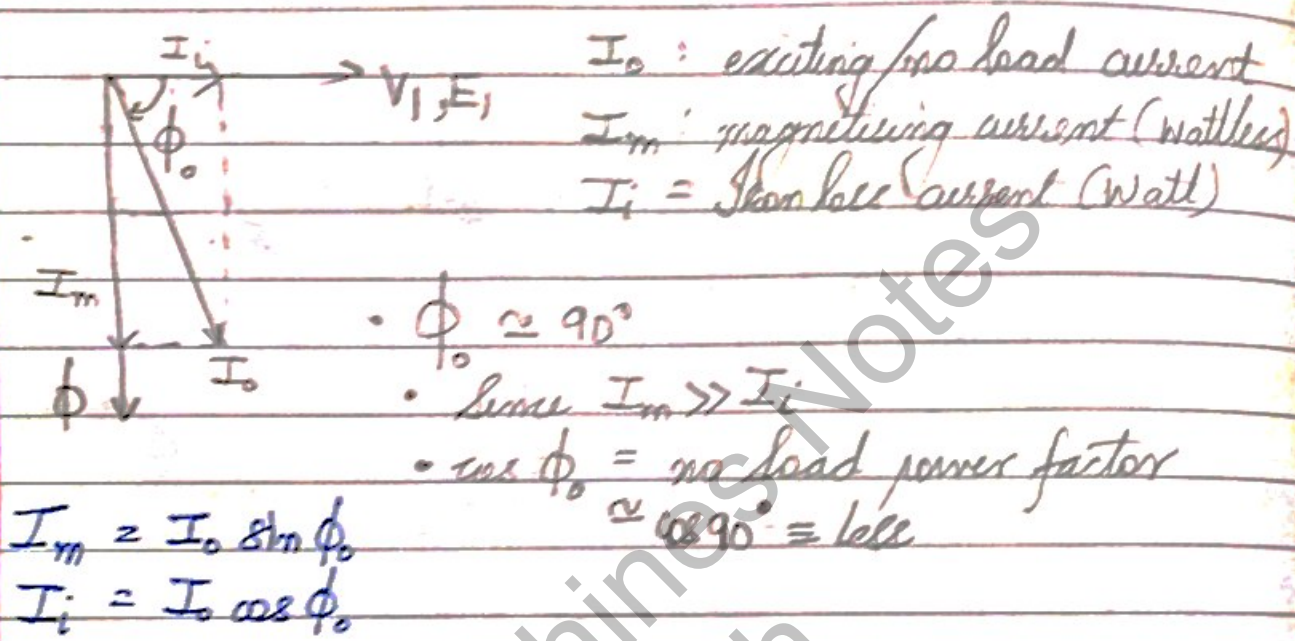 I_i
V₁, E₁
ϕ₀
I₀ : exciting/no load current
I_m : magnetising current (wattless)
I_i = Iron loss current (Watt)
I_m
I₀
ϕ
• ϕ₀ ≃ 90°
• Since I_m >> I_i
• cos ϕ₀ = no load power factor
≃ cos90° = less
I_m = I₀ sin ϕ₀
I_i = I₀ cos ϕ₀
Notes